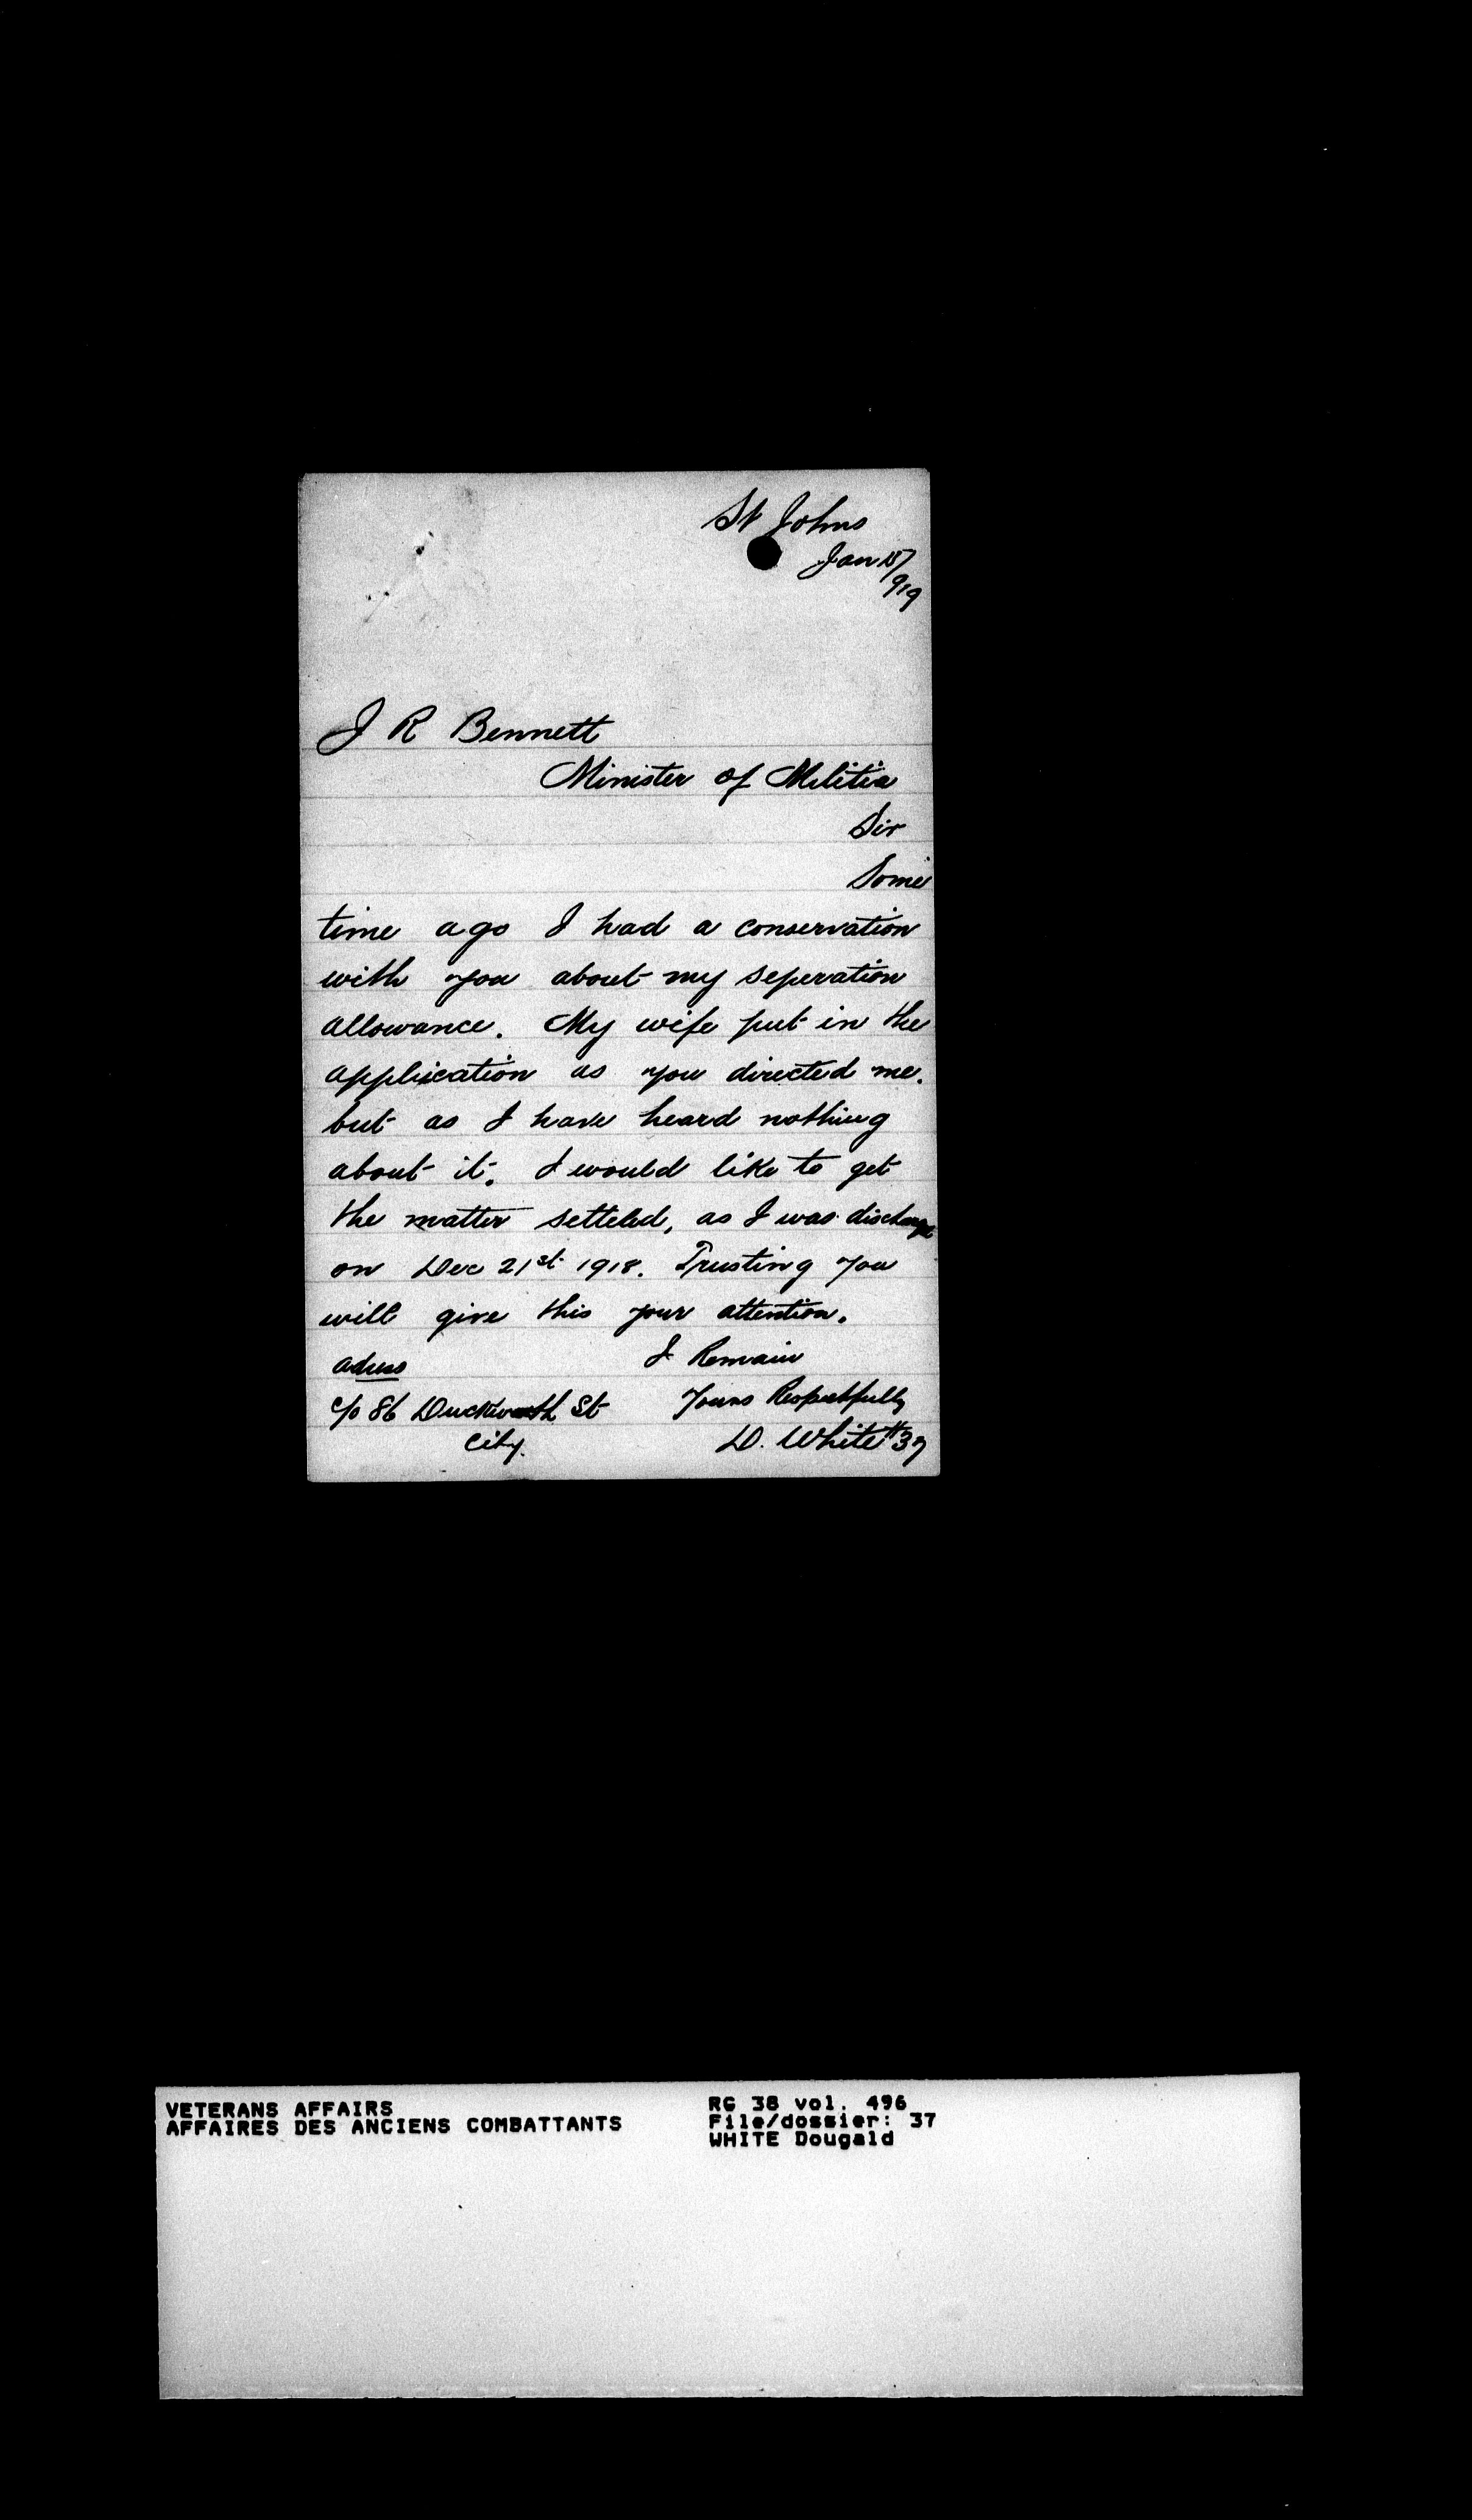 St Johns
Jan 15/
919
J R Bennett
Minister of Militia
Sir
Some
time ago I had a conservation
with you about my seperation
allowance. My wife put in the
application as you directed me.
but as I have heard nothing
about it. I would like to get
the matter setteled, as I was discharge
on Dec 21st 1918. Trusting you
will give this your attention.
adress I Remain
c/o 86 Duckworth St Yours Respectfully
City. D. White #37
VETERANS AFFAIRS RG 38 vol. 496
AFFAIRES DES ANCIENS COMBATTANTS File/dossier: 37
WHITE Dougald